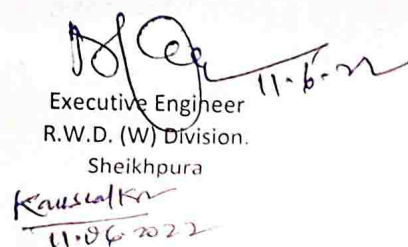 11.6.22
Executive Engineer
R.W.D. (W) Division.
Sheikhpura
11.06.2022